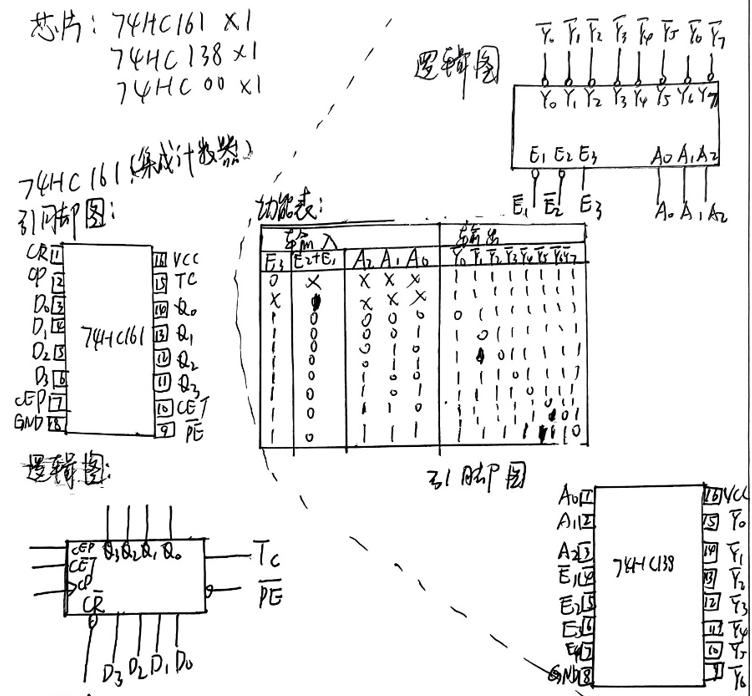 芯片: 74HC161 x1
74HC138 x1
74HC00 x1
74HC161(集成计数器)
引脚图:
CR 1 16 VCC
CP 2 15 TC
D0 3 14 Q0
D1 4 13 Q1
D2 5 12 Q2
D3 6 11 Q3
CEP 7 10 CET
GND 8 9 P̅E̅
74HC161
逻辑图:
Q3 Q2 Q1 Q0
CEP
CET
CP
C̅R̅
Tc
P̅E̅
D3 D2 D1 D0
逻辑图
Y̅0 Y̅1 Y̅2 Y̅3 Y̅4 Y̅5 Y̅6 Y̅7
Y0 Y1 Y2 Y3 Y4 Y5 Y6 Y7
E1 E2 E3 A0 A1 A2
E̅1 E̅2 E3 A0 A1 A2
功能表:
输入 输出
E3 E̅2+E̅1 A2 A1 A0 Y̅0 Y̅1 Y̅2 Y̅3 Y̅4 Y̅5 Y̅6 Y̅7
0 x x x x 1 1 1 1 1 1 1 1
x 1 x x x 1 1 1 1 1 1 1 1
1 0 0 0 0 0 1 1 1 1 1 1 1
1 0 0 0 1 1 0 1 1 1 1 1 1
1 0 0 1 0 1 1 0 1 1 1 1 1
1 0 0 1 1 1 1 1 0 1 1 1 1
1 0 1 0 0 1 1 1 1 0 1 1 1
1 0 1 0 1 1 1 1 1 1 0 1 1
1 0 1 1 0 1 1 1 1 1 1 0 1
1 0 1 1 1 1 1 1 1 1 1 1 0
引脚图
A0 1 16 VCC
A1 2 15 Y̅0
A2 3 14 Y̅1
E̅1 4 13 Y̅2
E2 5 12 Y̅3
E3 6 11 Y̅4
7 10 Y̅5
GND 8 9 Y̅6
74HC138